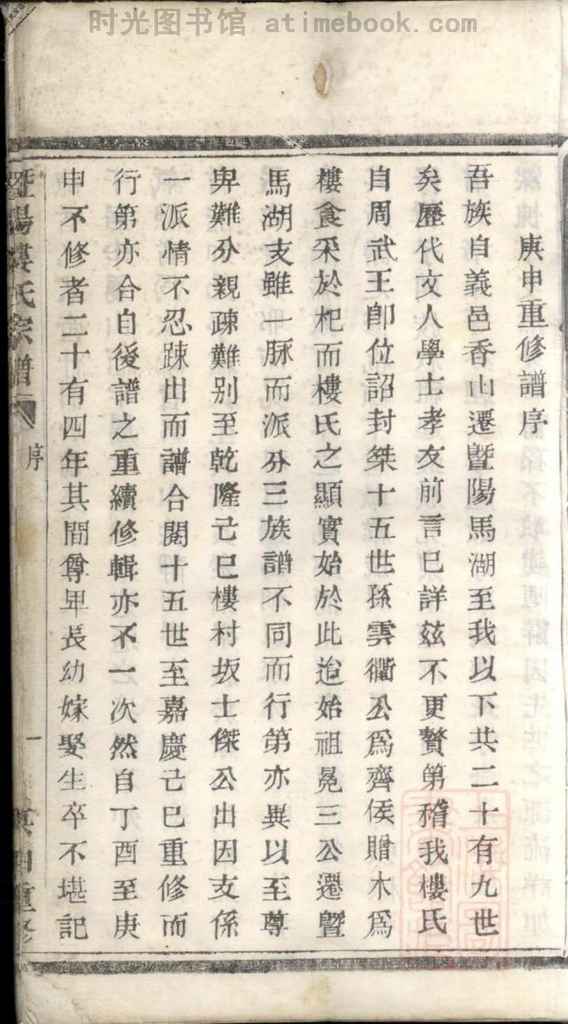 时光图书馆 atimebook.com
庚申重修譜序
吾族自義邑香山遷暨陽馬湖至我以下共二十有九世
矣歷代文人學士孝友前言已詳茲不更贅第稽我樓氏
自周武王卽位詔封桀十五世孫雲衢公爲齊侯贈木爲
樓食采於杞而樓氏之顯實始於此迨始祖晃三公遷暨
馬湖支雖一脉而派分三族譜不同而行第亦異以至尊
卑難分親疎難别至乾隆己巳樓村坂士傑公出因支係
一派情不忍踈出而譜合閱十五世至嘉慶己巳重修而
行第亦合自後譜之重續修輯亦不一次然自丁酉至庚
申不修者二十有四年其間尊卑長幼嫁娶生卒不堪記
暨陽樓氏宗譜
序
一
庚申重修